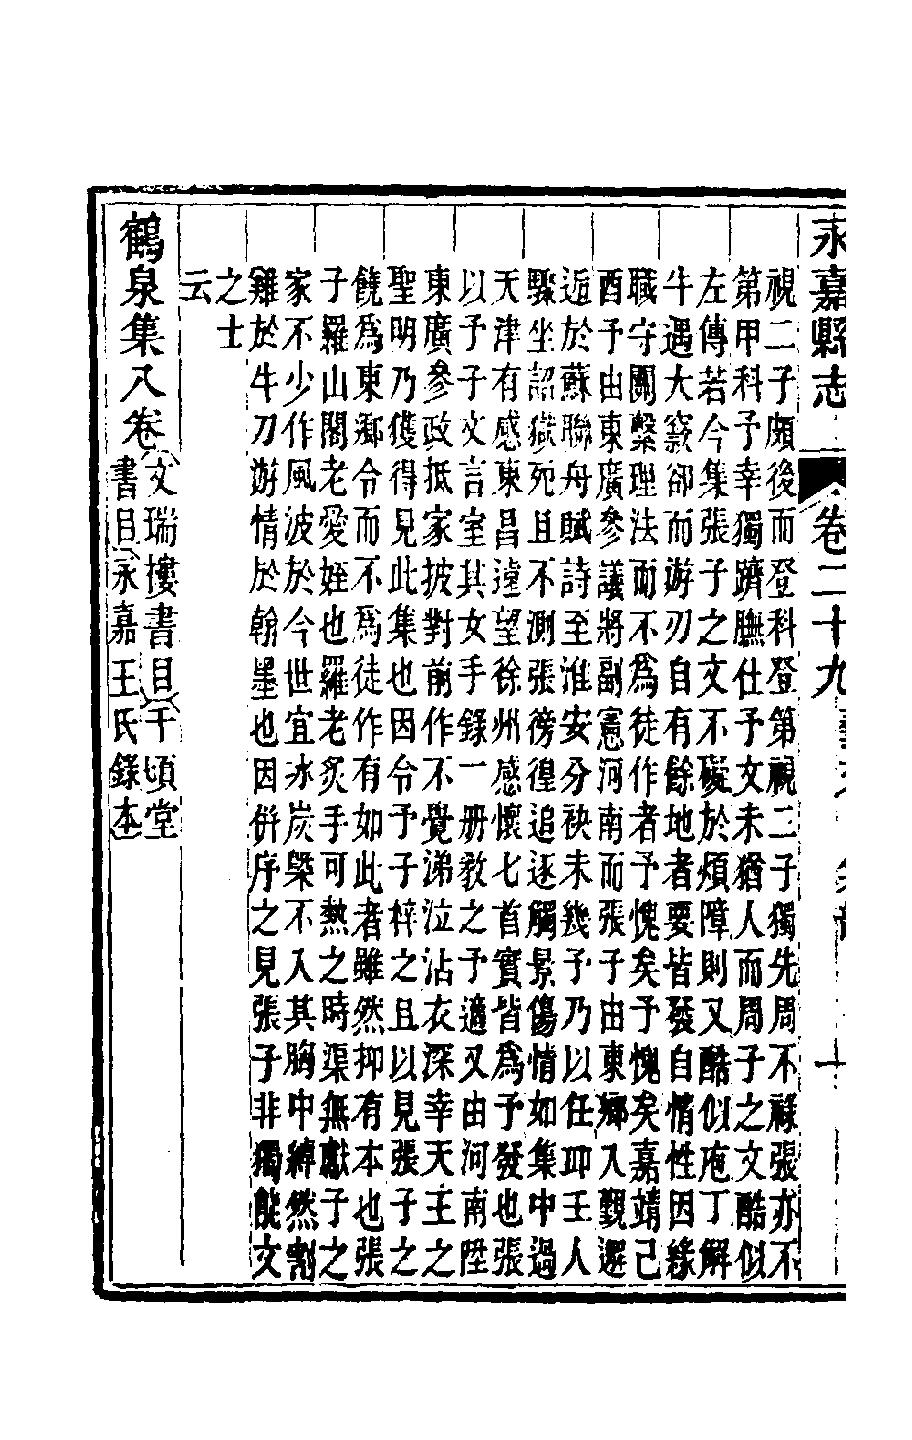 永嘉縣志 卷二十九
視二子頗後而登科登第視二子獨先周不祿張亦不
第甲科予幸獨躋膴仕予文未猶人而周子之文酷似
左傳若今集張子之文不礙於煩障則又酷似庖丁解
牛遇大窾卻而游刃自有餘地者要皆發自情性因緣
職守關繫理法而不為徒作者予愧矣予愧矣嘉靖己
酉予由東廣參議將副憲河南而張子由東鄉入覲邂
逅於蘇聯舟賦詩至淮安分袂未幾予乃以任卭壬人
驟坐詔獄死且不測張徬徨追逐觸景傷情如集中過
天津有感東昌遠望徐州感懷七首實皆為予發也張
以予子文言室其女手錄一册教之予適又由河南陞
東廣參政抵家披對前作不覺涕泣沾衣深幸天王之
聖明乃獲得見此集也因令予子梓之且以見張子之
饒為東鄉令而不為徒作有如此者雖然抑有本也張
子羅山閣老愛姪也羅老炙手可熱之時渠無獻子之
家不少作風波於今世宜冰炭槩不入其胸中綽然割
雞於牛刀游情於翰墨也因併序之見張子非獨能文
之士
云
鶴泉集八卷 文瑞樓書目 千頃堂
書目 永嘉王氏錄本